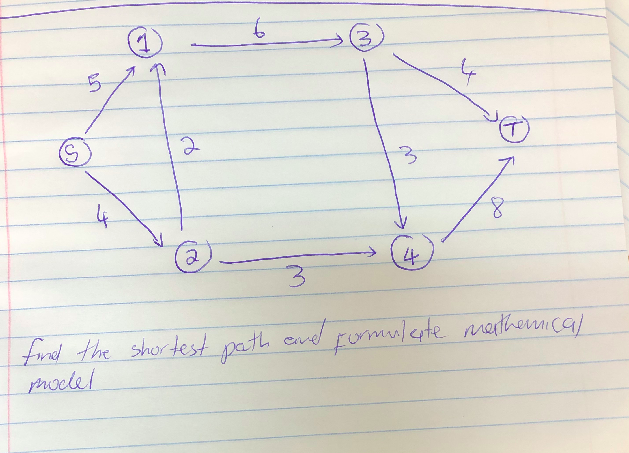 6
1
3
5
4
S
2
T
3
4
8
2
4
3
find the shortest path and formulate mathemical
model